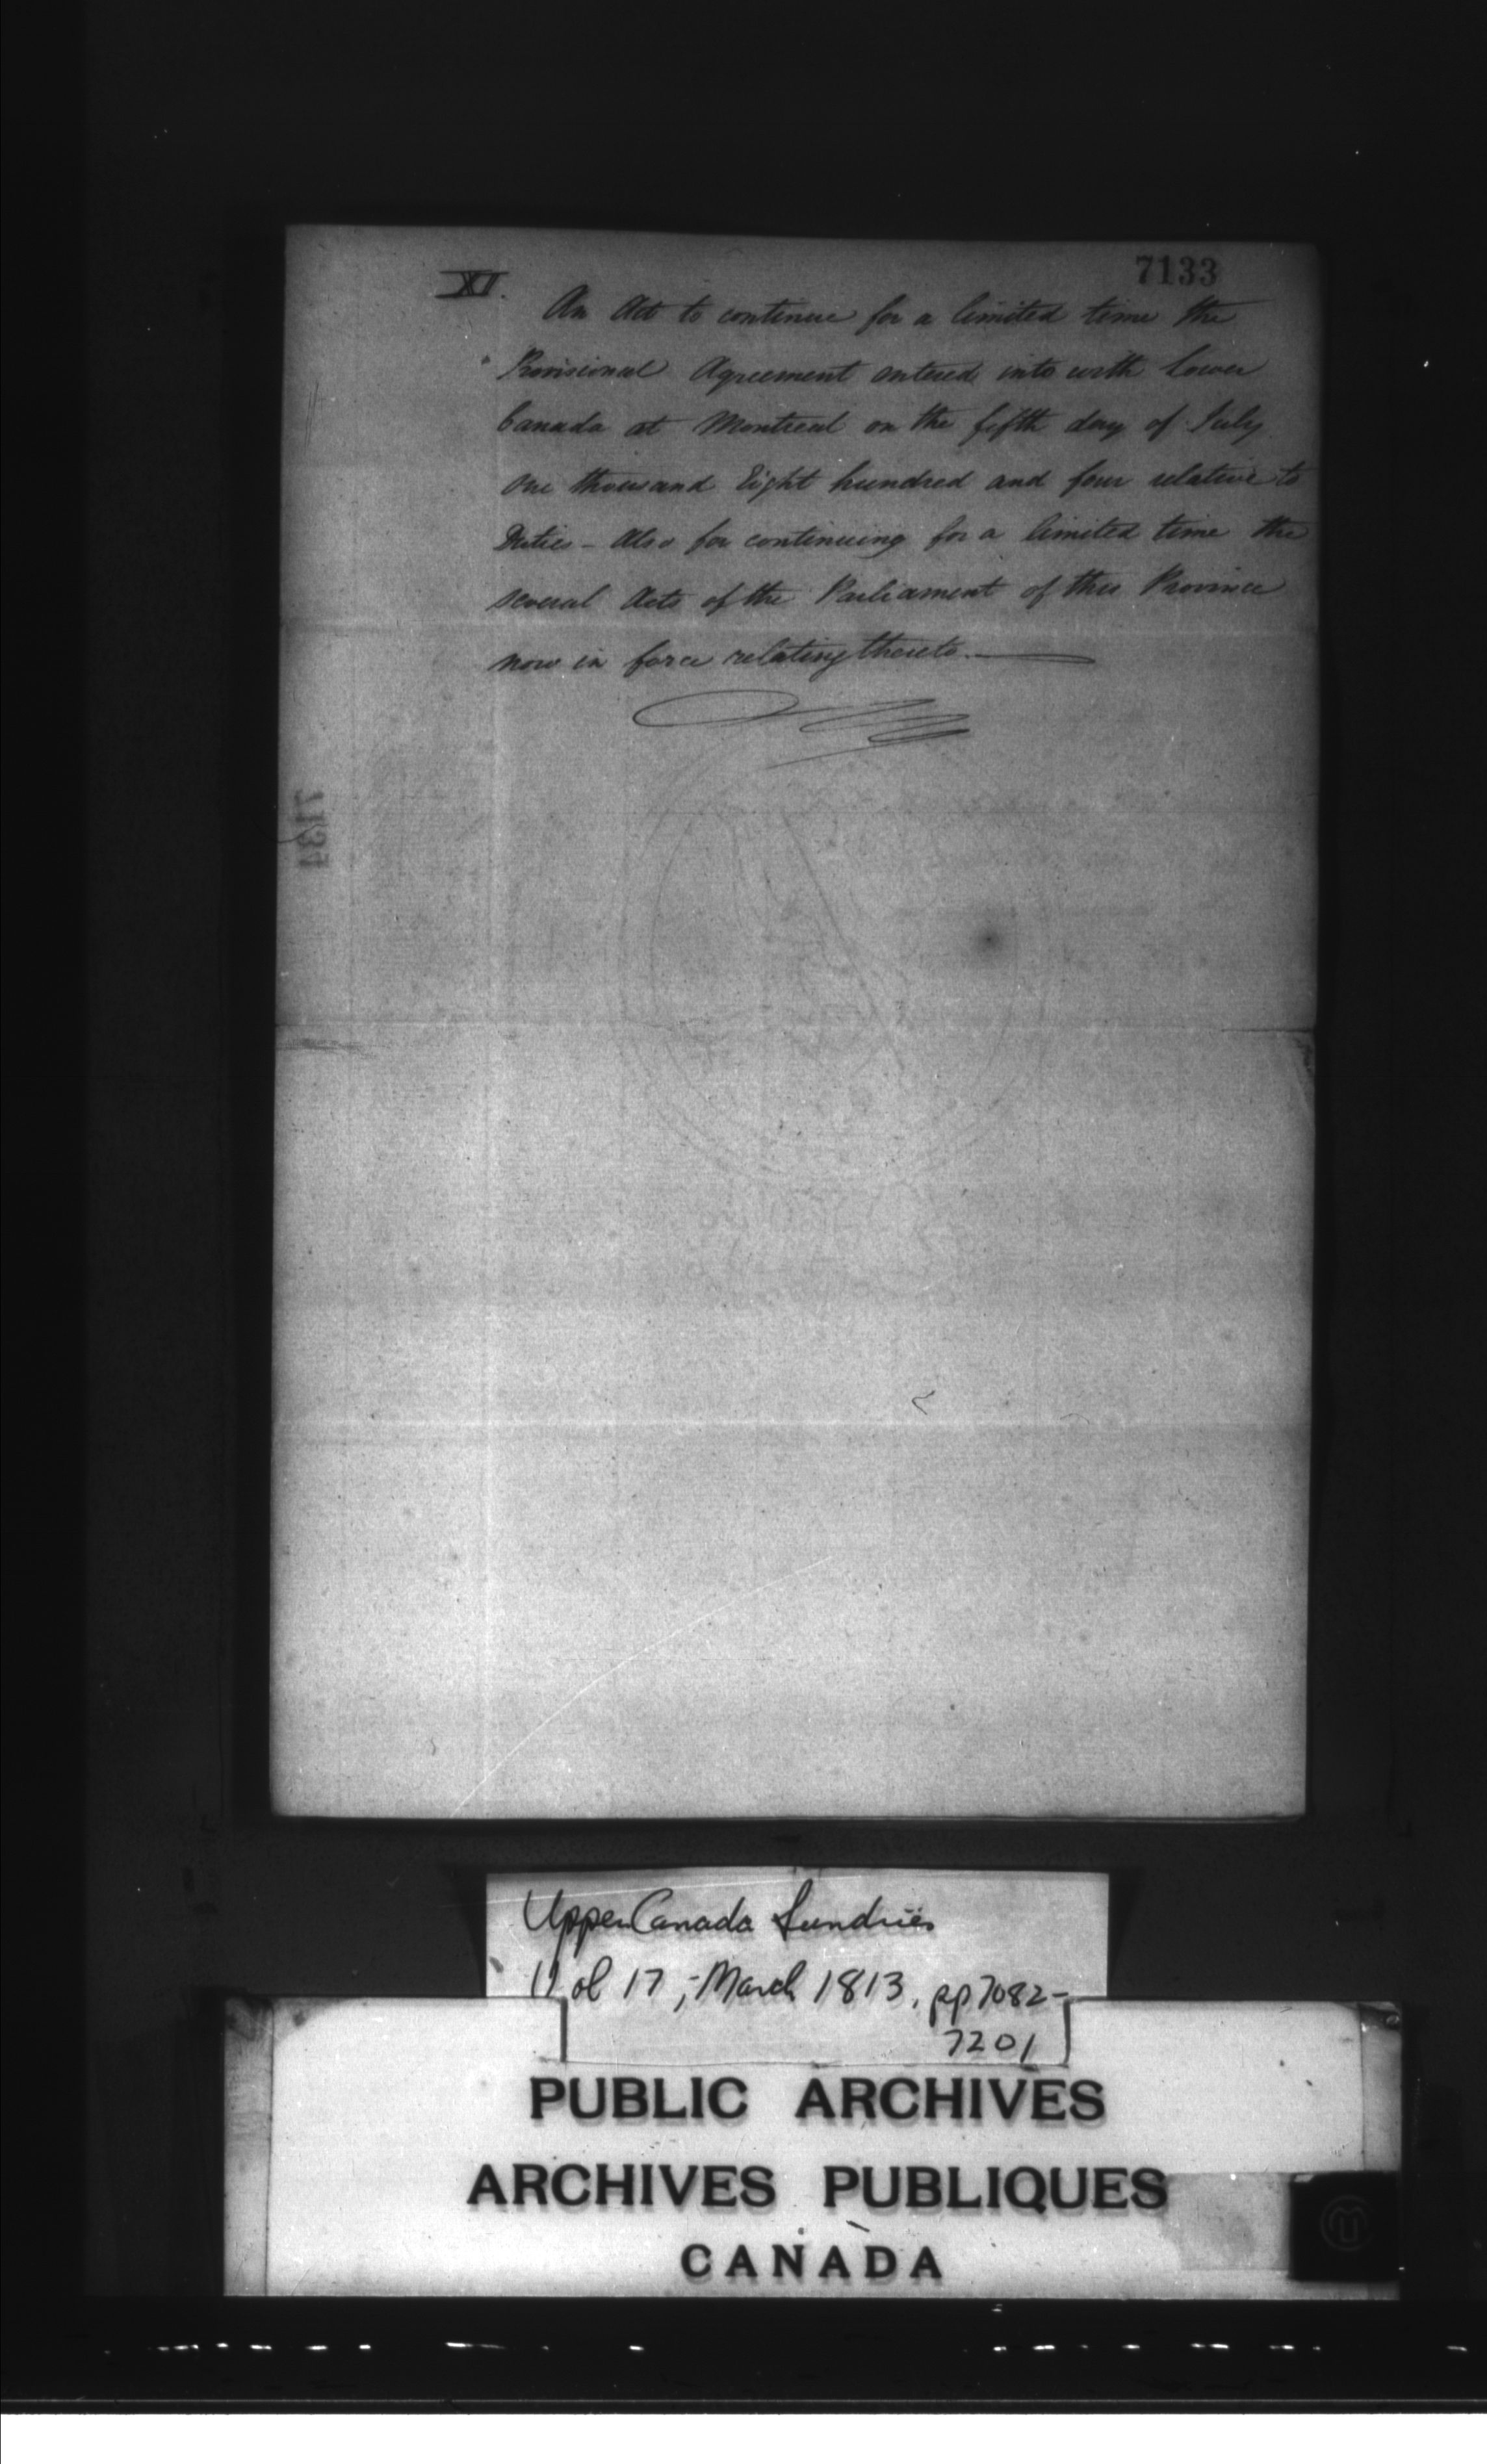 7133
XI.
An Act to continue for a limited time the
Provisional Agreement entered into with Lower
Canada at Montreal on the fifth day of July
one thousand Eight hundred and four relative to
Duties - Also for continuing for a limited time the
several Acts of the Parliament of this Province
now in force relating thereto.
7134
Upper Canada Sundries
Vol 17, - March 1813, pp 7082-
7201
PUBLIC ARCHIVES
ARCHIVES PUBLIQUES
CANADA